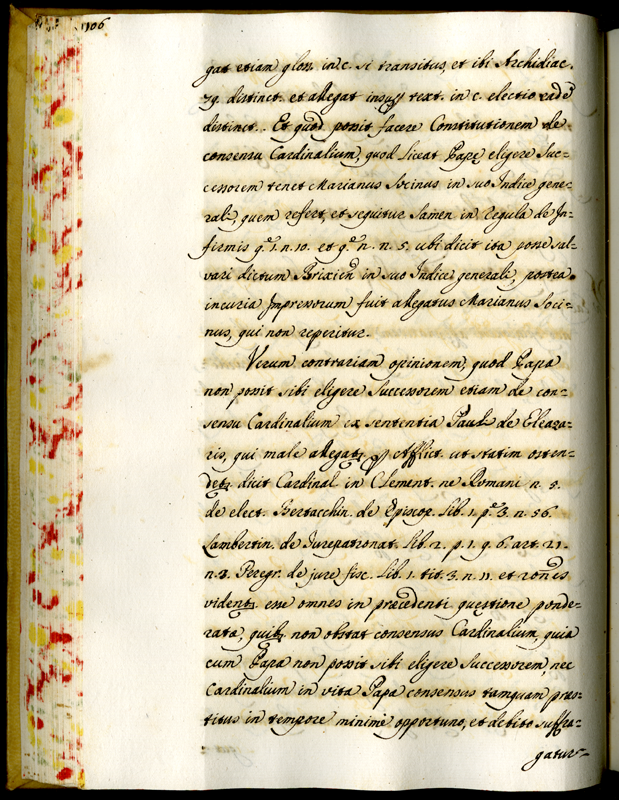 106
gat etiam glos. in c. si transitus, et ibi Archidiac.
79. distinct. et allegat text. in c. electio
distinct.. Et quod possit facere Constitutionem de
consensu Cardinalium, quod liceat Papæ eligere Suc=
cessorem tenet Marianus Socinus in suo Indice gene=
rali, quem refert, et sequitur in regula de In=
firmis q. 1. n. 10. et q. n. n. 5. ubi dicit ita posse sal=
vari dictum Brixien in suo Indice generali, postea
incuria Impressorum fuit allegatus Marianus Soci=
nus, qui non reperitur.
Verum contrariam opinionem, quod Papa
non possit sibi eligere Successorem etiam de con=
sensu Cardinalium ex sententia Pauli de Eleaza=
ris, qui male allegatr p Afflict. ut statim osten=
detr dicit Cardinal in Clement. ne Romani n. 5.
de elect. Bertacchin. de Episcop. lib. 1. p. 3. n. 56.
Lambertin. de Jurepatronat. lib. 2. p. 1. q. 6. art. 21.
n. 2. Peregr. de jure fisc. lib. 1. tit. 3. n. 11. et rones
videntr esse omnes in præcedenti questione ponde=
ratæ, quibz non obstat consensus Cardinalium, quia
cum Papa non possit sibi eligere Successorem, nec
Cardinalium in vita Papæ consensus tamquam præs=
titus in tempore minime opportuno, et debito suffra=
gatur=